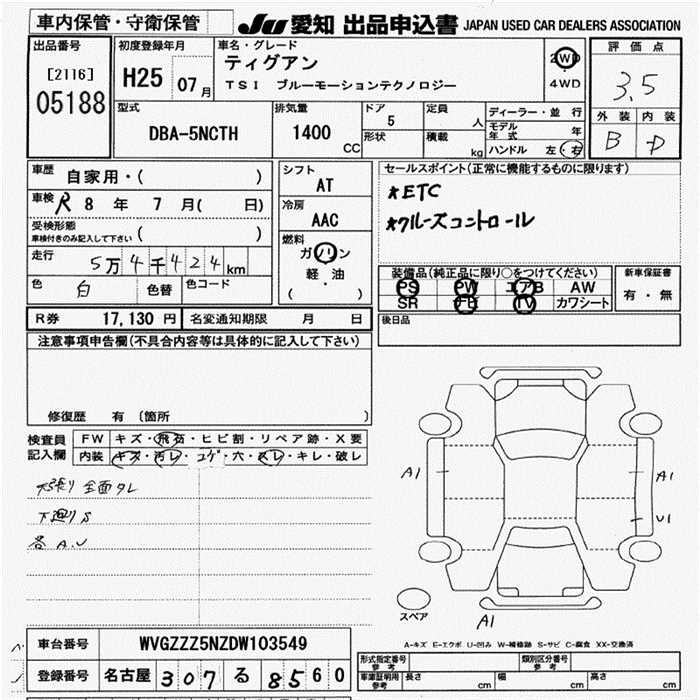 車内保管・守衛保管
JU 愛知 出品申込書 JAPAN USED CAR DEALERS ASSOCIATION
出品番号
[2116]
05188
初度登録年月
H25 07月
車名・グレード
ティグアン
TSI ブルーモーションテクノロジー
2WD
4WD
評価点
3.5
外装 内装
B D
型式
DBA-5NCTH
排気量
1400 CC
ドア
5
形状
定員
人
積載
kg
ディーラー・並行
モデル年式 年
ハンドル 左・右
車歴 自家用・( )
車検 R 8年 7月( 日)
受検形態
車検付きのみ記入して下さい ( )
走行 5万4千424km
色 白 色替 色コード
シフト
AT
冷房
AAC
燃料
ガソリン
軽・油
( )
セールスポイント(正常に機能するものに限ります)
*ETC
*クルーズコントロール
装備品(純正品に限り○をつけてください)
PS PW エアB AW
SR TV カワシート
新車保証書
有・無
R券 17,130円 名変通知期限 月 日
後日品
注意事項申告欄(不具合内容等は具体的に記入して下さい)
修復歴 有 (箇所 )
検査員記入欄
FW キズ・飛石・ヒビ割・リペア跡・X要
内装 キズ・汚レ・コゲ・穴・スレ・キレ・破レ
天張り 全面タレ
下廻りS
各A.U
A1
A1
U1
A1
スペア
A-キズ E-エクボ U-凹み W-補修跡 S-サビ C-腐食 XX-交換済
車台番号 WVGZZZ5NZDW103549
登録番号 名古屋 307 る 8560
形式指定番号 参考 類別区分番号 参考
車庫証明用 参考 長さ cm 幅 cm 高さ cm